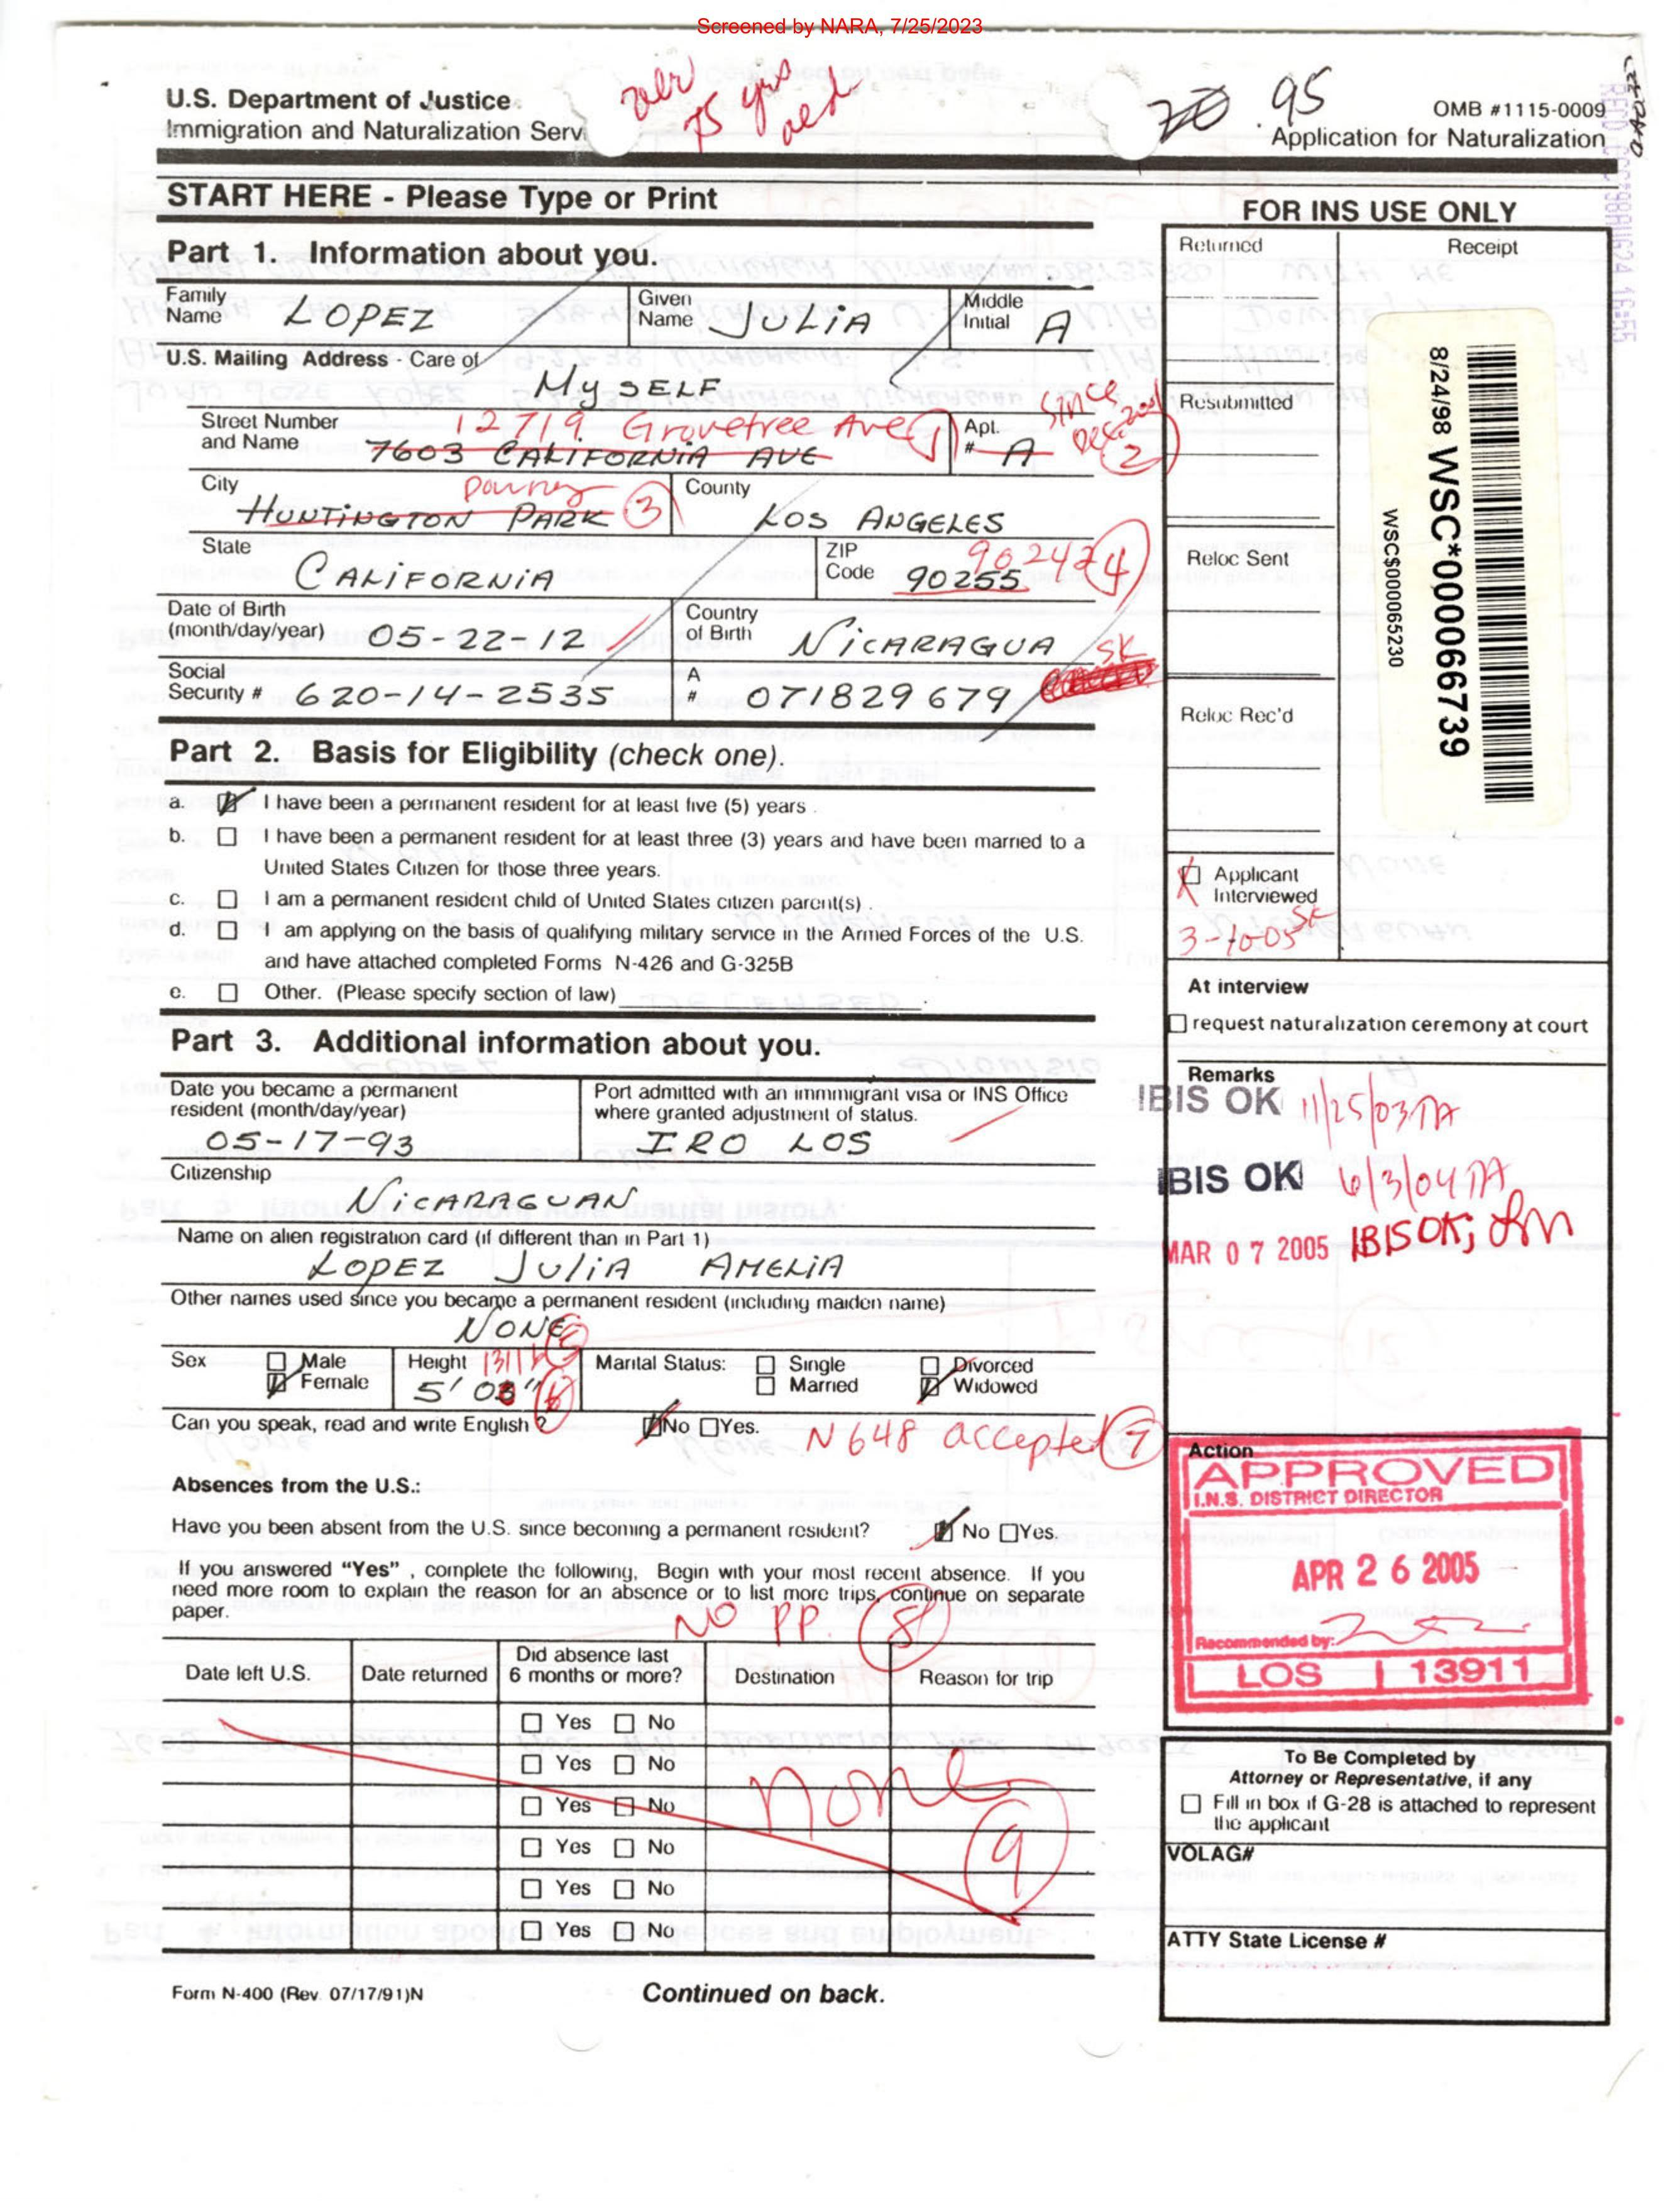 Screened by NARA, 7/25/2023
over 75 yrs old
95
U.S. Department of Justice
Immigration and Naturalization Serv
OMB #1115-0009
Application for Naturalization
START HERE - Please Type or Print
Part 1. Information about you.
Family Name LOPEZ
Given Name JULIA
Middle Initial A
U.S. Mailing Address - Care of
MySELF
Street Number and Name
12719 Grovetree Ave 1
7603 CALIFORNIA AVE
Apt. # A
since Dec 2001 2
City
Downey
HUNTINGTON PARK 3
County
LOS ANGELES
State
CALIFORNIA
ZIP Code
90242 4
90255
Date of Birth (month/day/year) 05-22-12
Country of Birth NICARAGUA
Social Security # 620-14-2535
A # 071829679
SK
Part 2. Basis for Eligibility (check one).
a. I have been a permanent resident for at least five (5) years .
b. I have been a permanent resident for at least three (3) years and have been married to a
United States Citizen for those three years.
c. I am a permanent resident child of United States citizen parent(s) .
d. I am applying on the basis of qualifying military service in the Armed Forces of the U.S.
and have attached completed Forms N-426 and G-325B
e. Other. (Please specify section of law)
Part 3. Additional information about you.
Date you became a permanent resident (month/day/year)
05-17-93
Port admitted with an immmigrant visa or INS Office where granted adjustment of status.
IRO LOS
Citizenship
NICARAGUAN
Name on alien registration card (if different than in Part 1)
LOPEZ JULIA AMELIA
Other names used since you became a permanent resident (including maiden name)
NONE 5
Sex Male Female
Height 5' 03" 6
Marital Status: Single Married Divorced Widowed
Can you speak, read and write English ? No Yes.
N648 accepted 7
Absences from the U.S.:
Have you been absent from the U.S. since becoming a permanent resident? No Yes.
If you answered “Yes” , complete the following, Begin with your most recent absence. If you
need more room to explain the reason for an absence or to list more trips, continue on separate
paper.
NO PP. 8
Date left U.S.
Date returned
Did absence last 6 months or more?
Destination
Reason for trip
Yes No
Yes No
Yes No
Yes No
Yes No
Yes No
none
9
Form N-400 (Rev 07/17/91)N
Continued on back.
FOR INS USE ONLY
Returned
Receipt
Resubmitted
Reloc Sent
Reloc Rec'd
8/24/98 WSC*000066739
WSC$000065230
Applicant Interviewed
SK
3-10-05
At interview
request naturalization ceremony at court
Remarks
IBIS OK 11/25/03
IBIS OK 6/3/04
MAR 07 2005 IBIS OK;
Action
APPROVED
I.N.S. DISTRICT DIRECTOR
APR 26 2005
Recommended by:
LOS 13911
To Be Completed by
Attorney or Representative, if any
Fill in box if G-28 is attached to represent
the applicant
VOLAG#
ATTY State License #